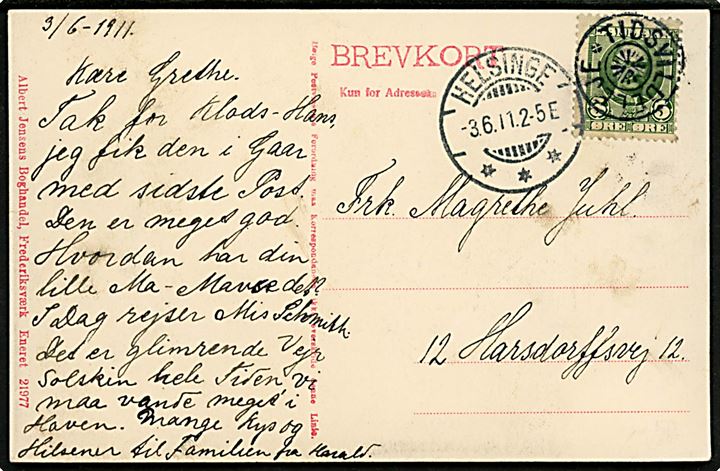 3/6-1911.
Kære Grethe.
Tak for Klods-Hans,
jeg fik den i Gaar
med sidste Post.
Den er meget god.
Hvordan har din
lille Ma-Mavse det?
I Dag rejser Mis Schmith.
Det er glimrende Vejr
Solskin hele Tiden vi
maa vande meget i
Haven. Mange Kys og
Hilsener til Familien fra Harald.
BREVKORT
Kun for Adressen.
HELSINGE
-3.6.11.2-5E
TIDSVILDE
ØRE ØRE
Frk. Magrethe Juhl.
12 Harsdorffsvej 12.
Albert Jensens Boghandel, Frederiksværk Eneret 21977
denne Linie.